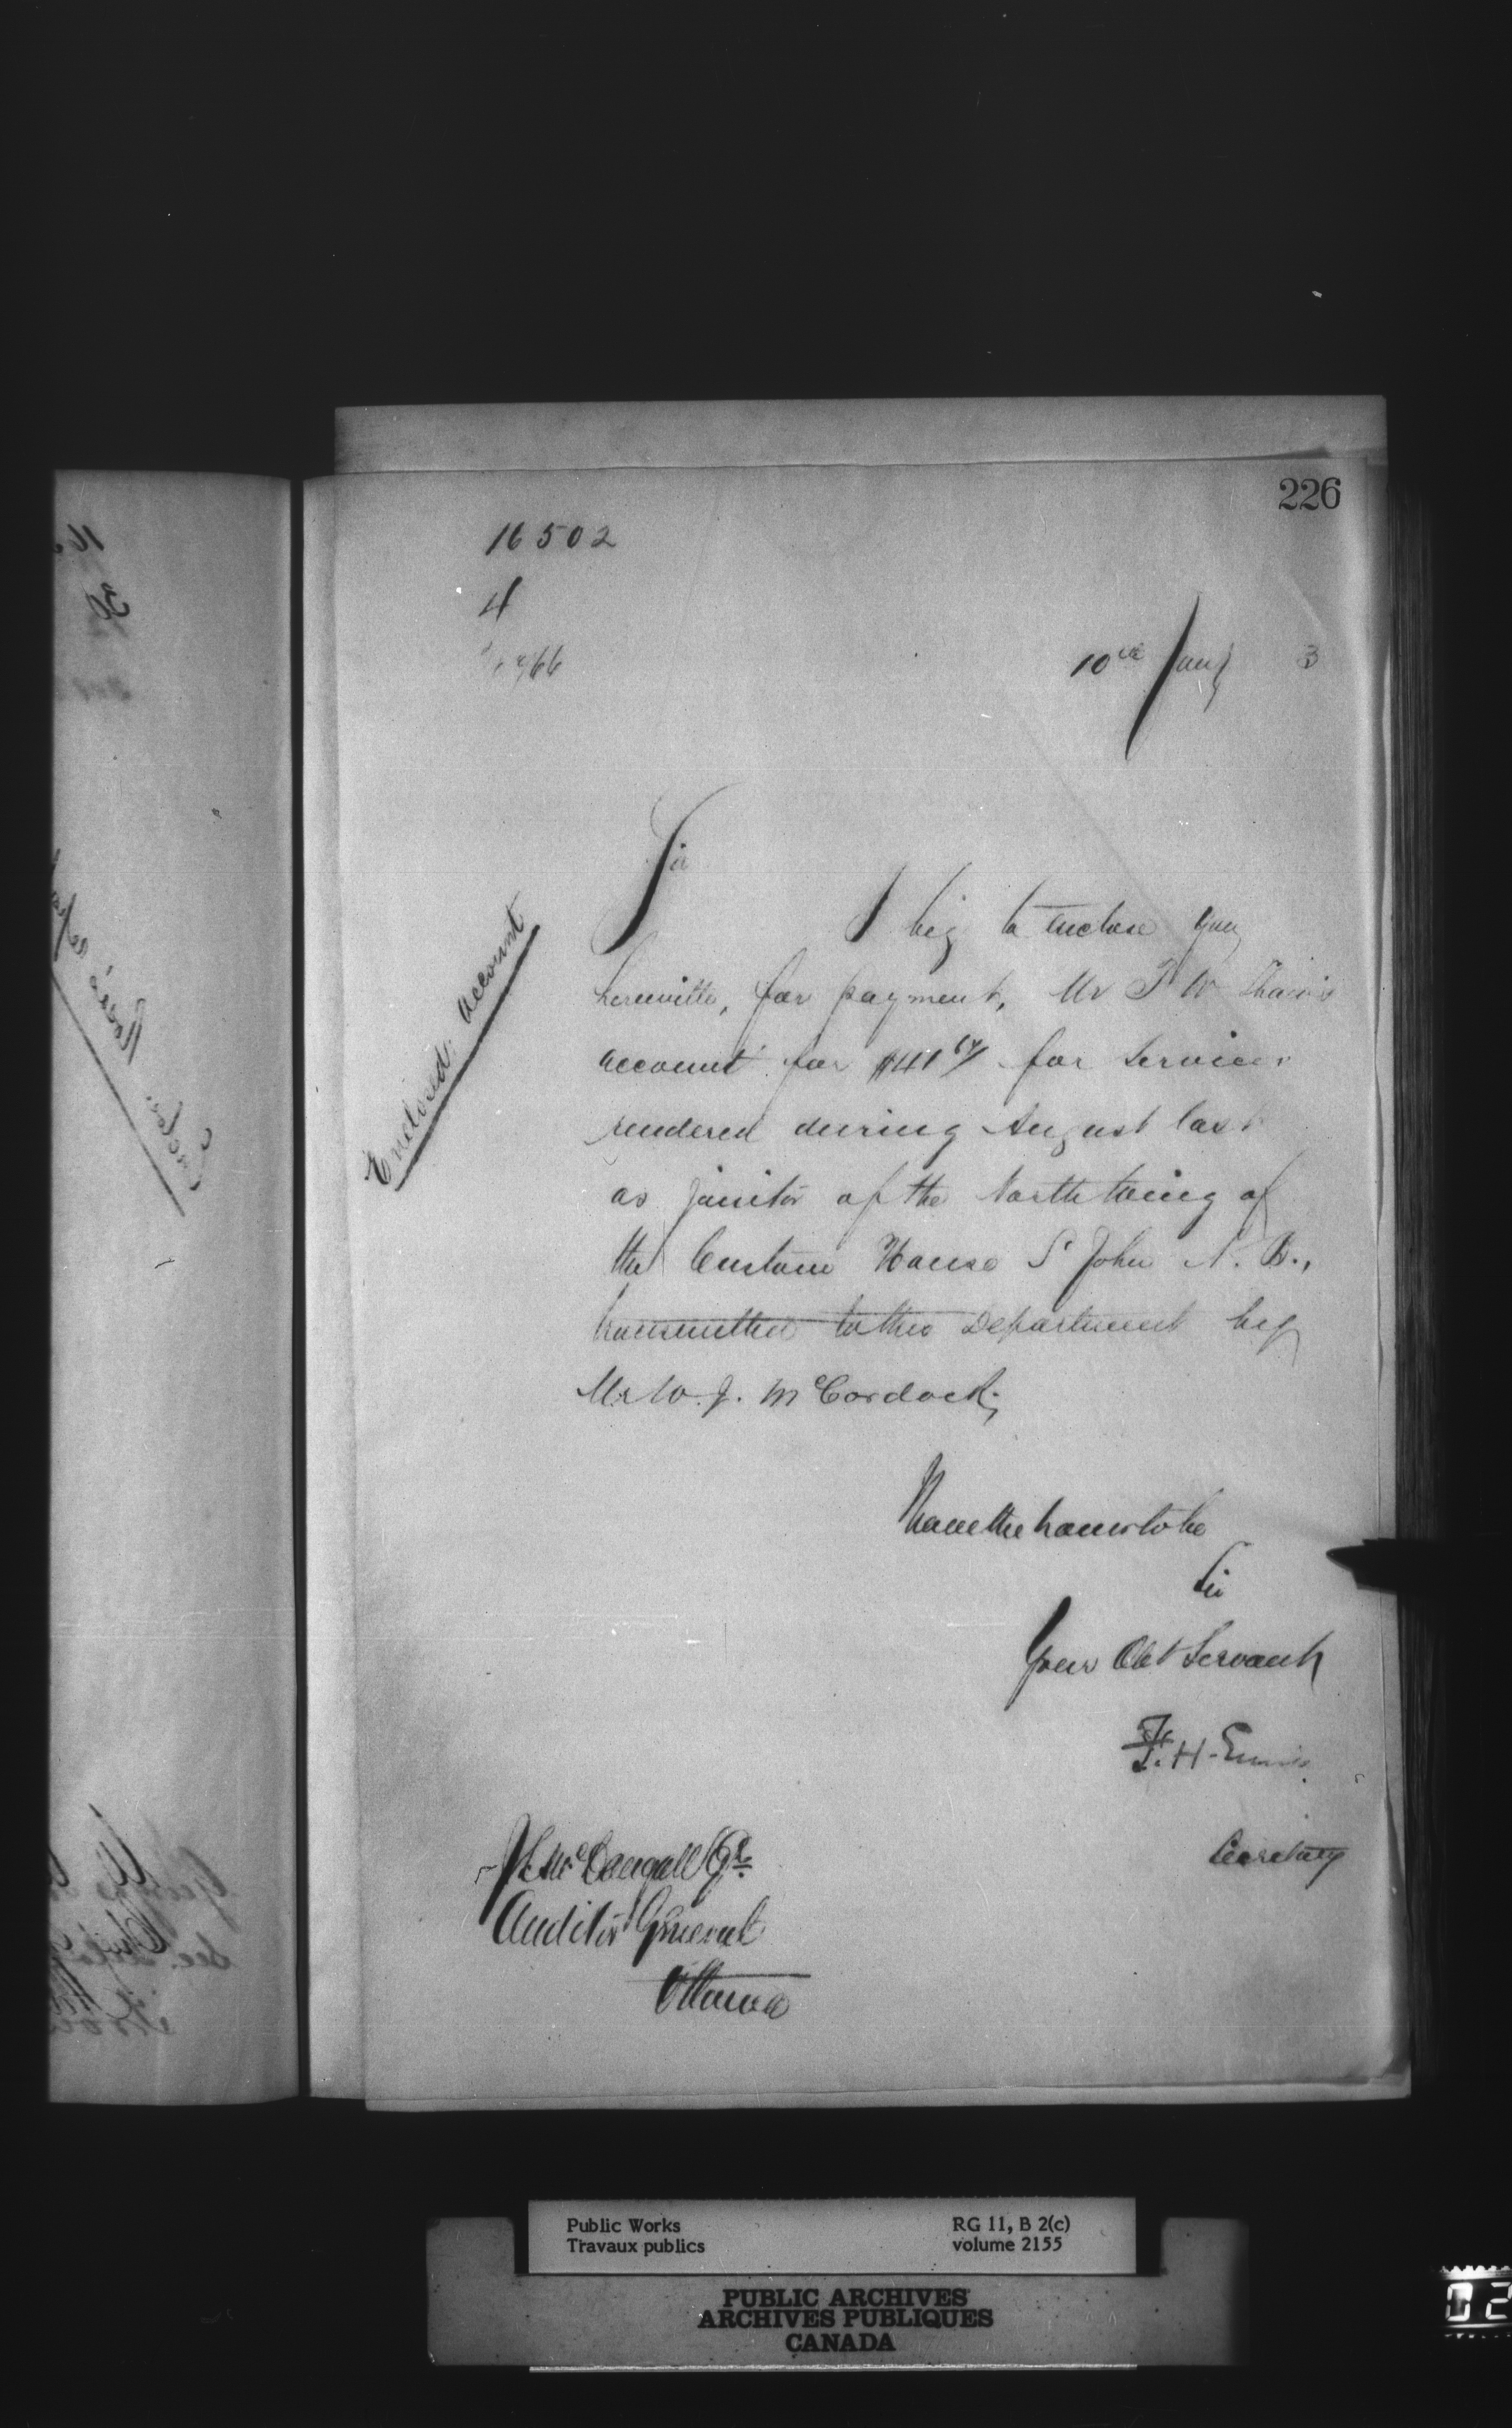 226
16502
4
10th Jany 3
Sir
I beg to enclose you
herewith, for payment, Mr T W
account for $41 67/ for services
rendered during August last
as janitor of the North wing of
the Custom House St John N. B.,
transmitted to this Department by
Mr W. J. McCordock,
Enclosed: account
I have the honor to be
Sir
Your Obt Servant
F. H. Ennis
Secretary
J L McDougall Esqr
Auditor General
Ottawa
Public Works
Travaux publics
RG 11, B 2(c)
volume 2155
PUBLIC ARCHIVES
ARCHIVES PUBLIQUES
CANADA
02